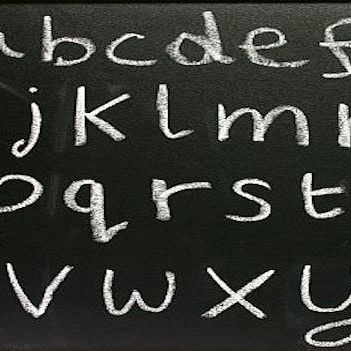 a b c d e f
j k l m n
o q r s t
v w x y